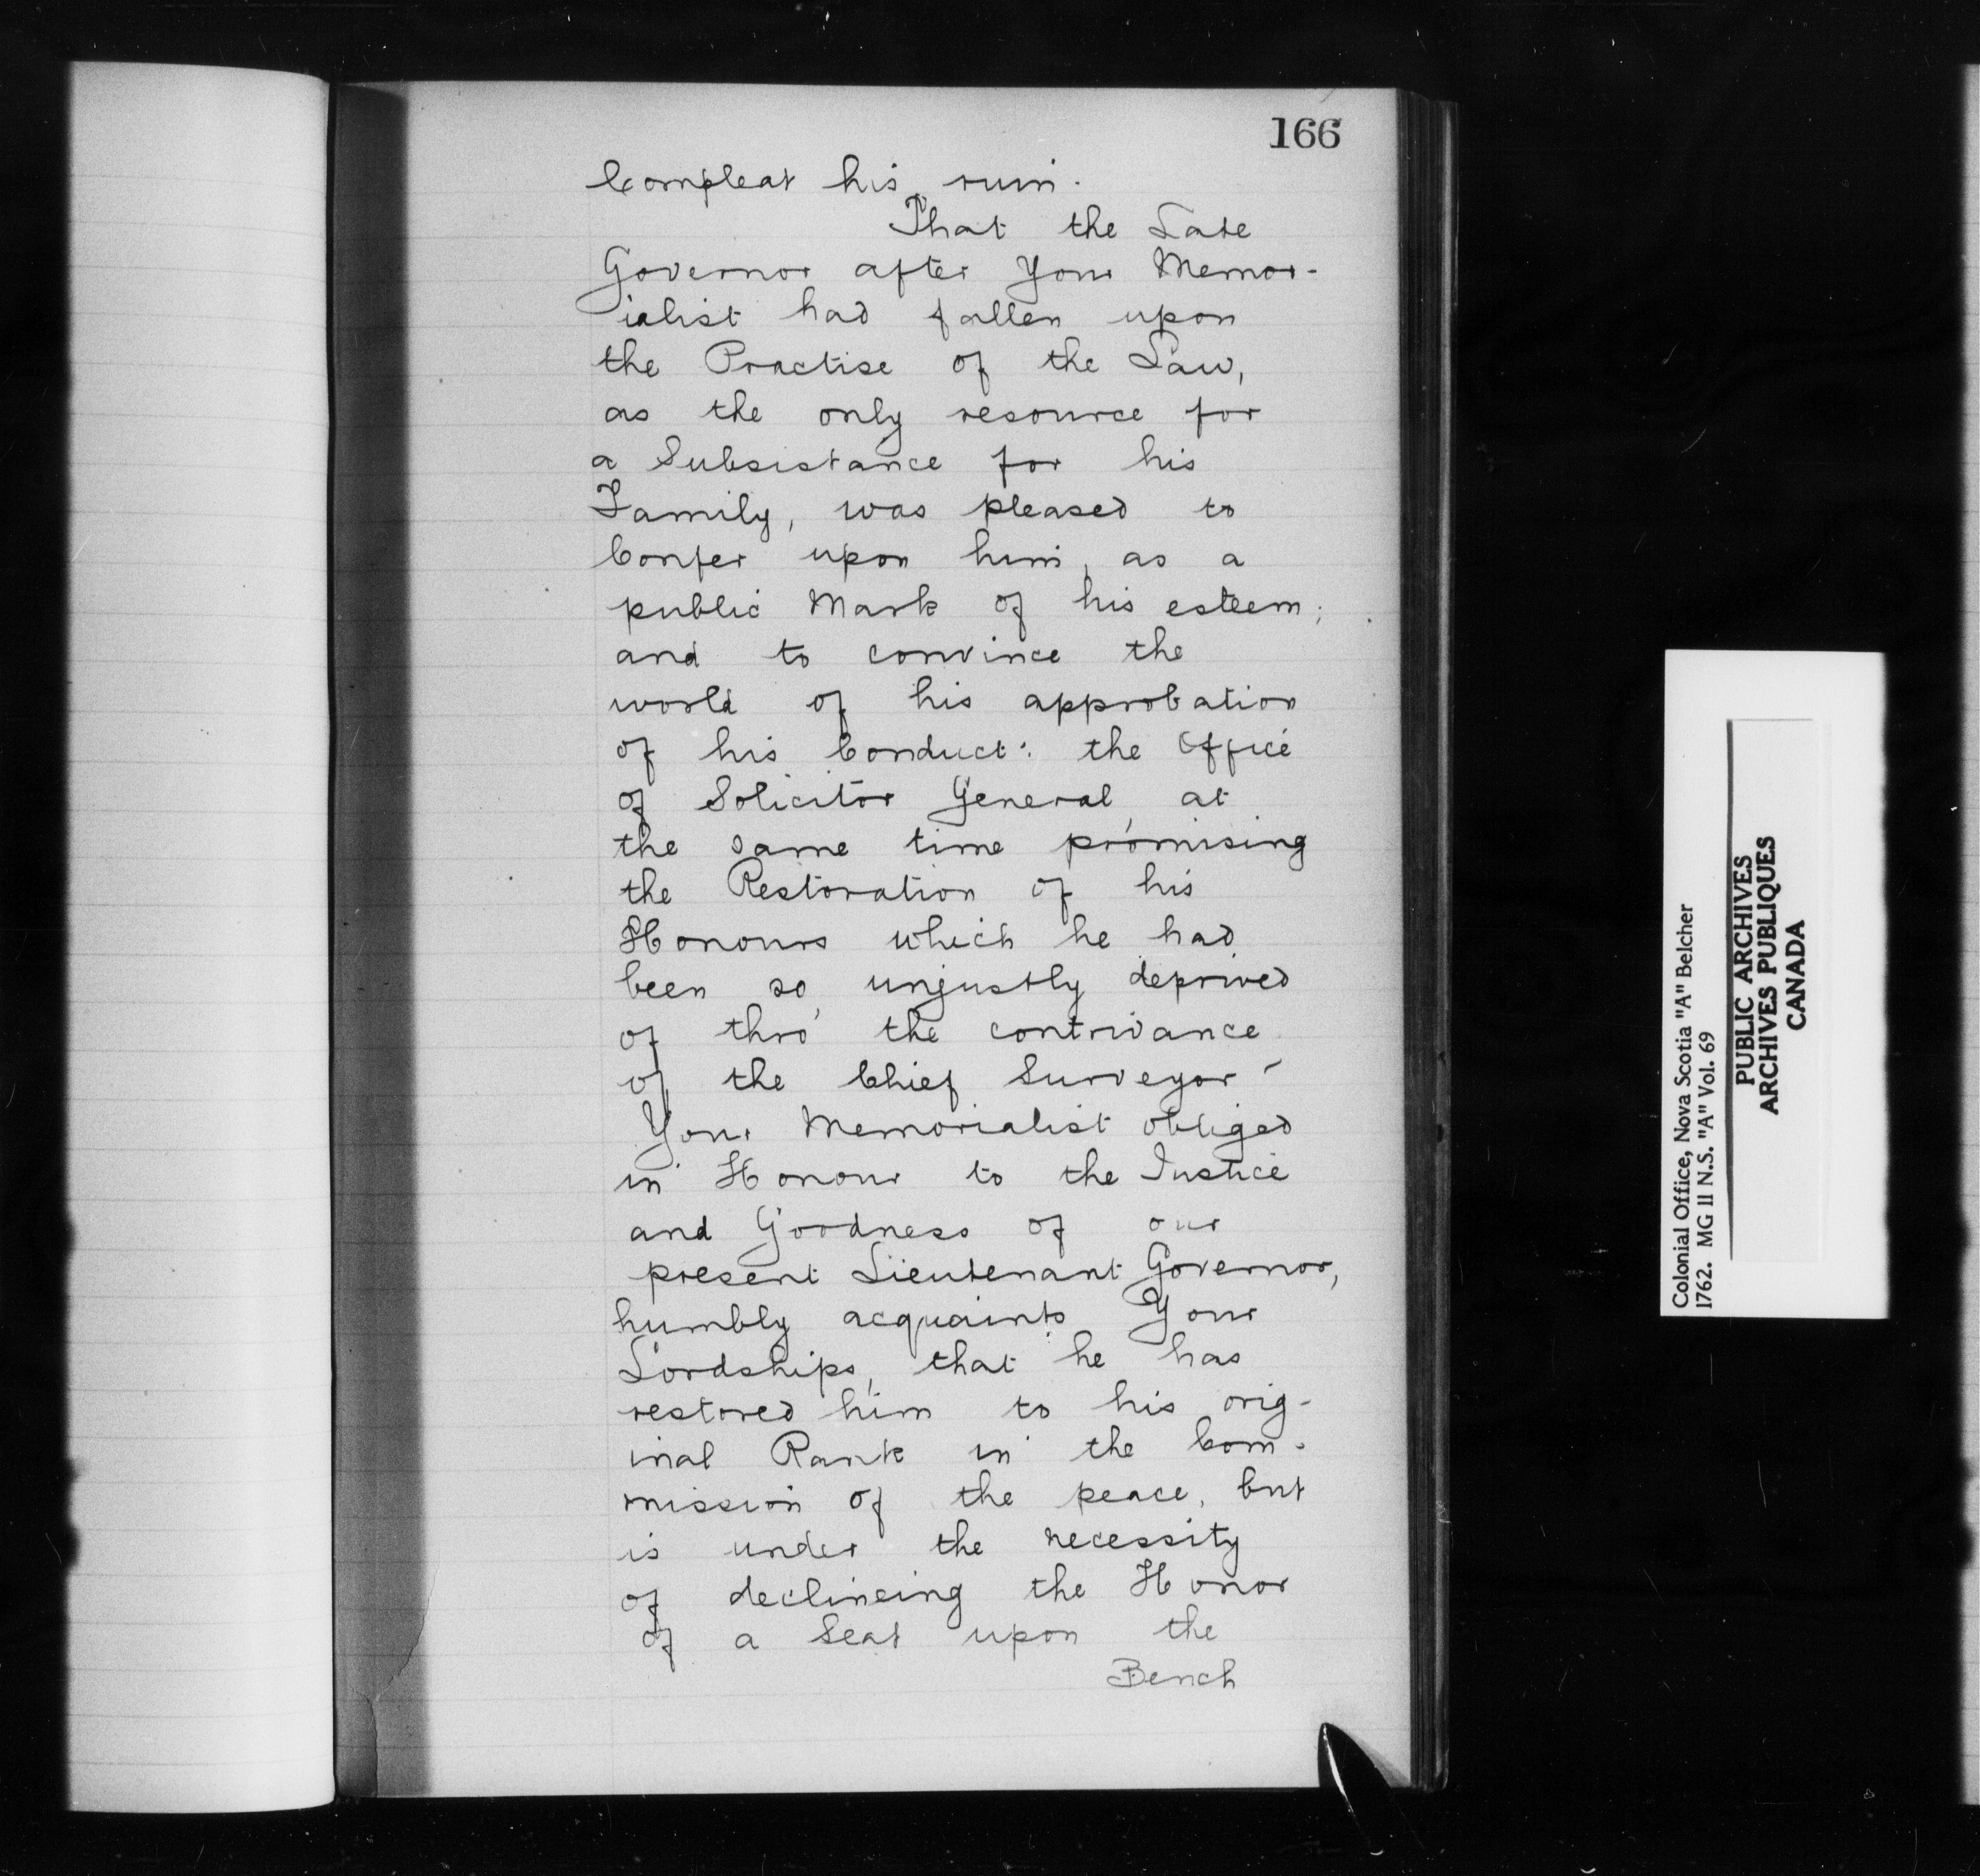 166
Compleat his ruin.
That the Late
Governor after Your Memor-
ialist had fallen upon
the Practise of the Law,
as the only resource for
a Subsistance for his
Family, was pleased to
Confer upon him, as a
public Mark of his esteem;
and to convince the
world of his approbation
of his Conduct: the Office
of Solicitor General, at
the same time promising
the Restoration of his
Honours which he had
been so unjustly deprived
of thro' the contrivance
of the Chief Surveyor -
Your Memorialist obliged
in Honour to the Justice
and Goodness of our
present Lieutenant Governor,
humbly acquaints Your
Lordships, that he has
restored him to his orig-
inal Rank in the Com-
mission of the peace, but
is under the necessity
of declineing the Honor
of a Seat upon the
Bench
Colonial Office, Nova Scotia "A" Belcher
1762. MG II N.S. "A" Vol. 69
PUBLIC ARCHIVES
ARCHIVES PUBLIQUES
CANADA